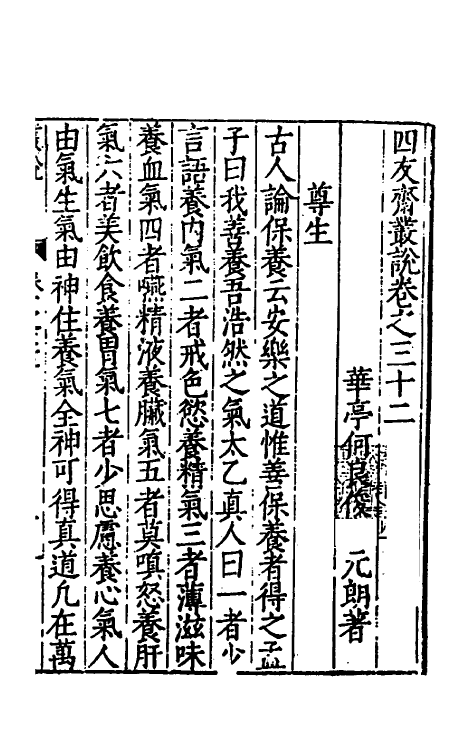 四友齋叢說卷之三十二
華亭何良俊 元朗著
尊生
古人論保養云安樂之道惟善保養者得之孟
子曰我善養吾浩然之氣太乙真人曰一者少
言語養內氣二者戒色慾養精氣三者薄滋味
養血氣四者嚥精液養臟氣五者莫嗔怒養肝
氣六者美飲食養胃氣七者少思慮養心氣人
由氣生氣由神住養氣全神可得真道凡在萬